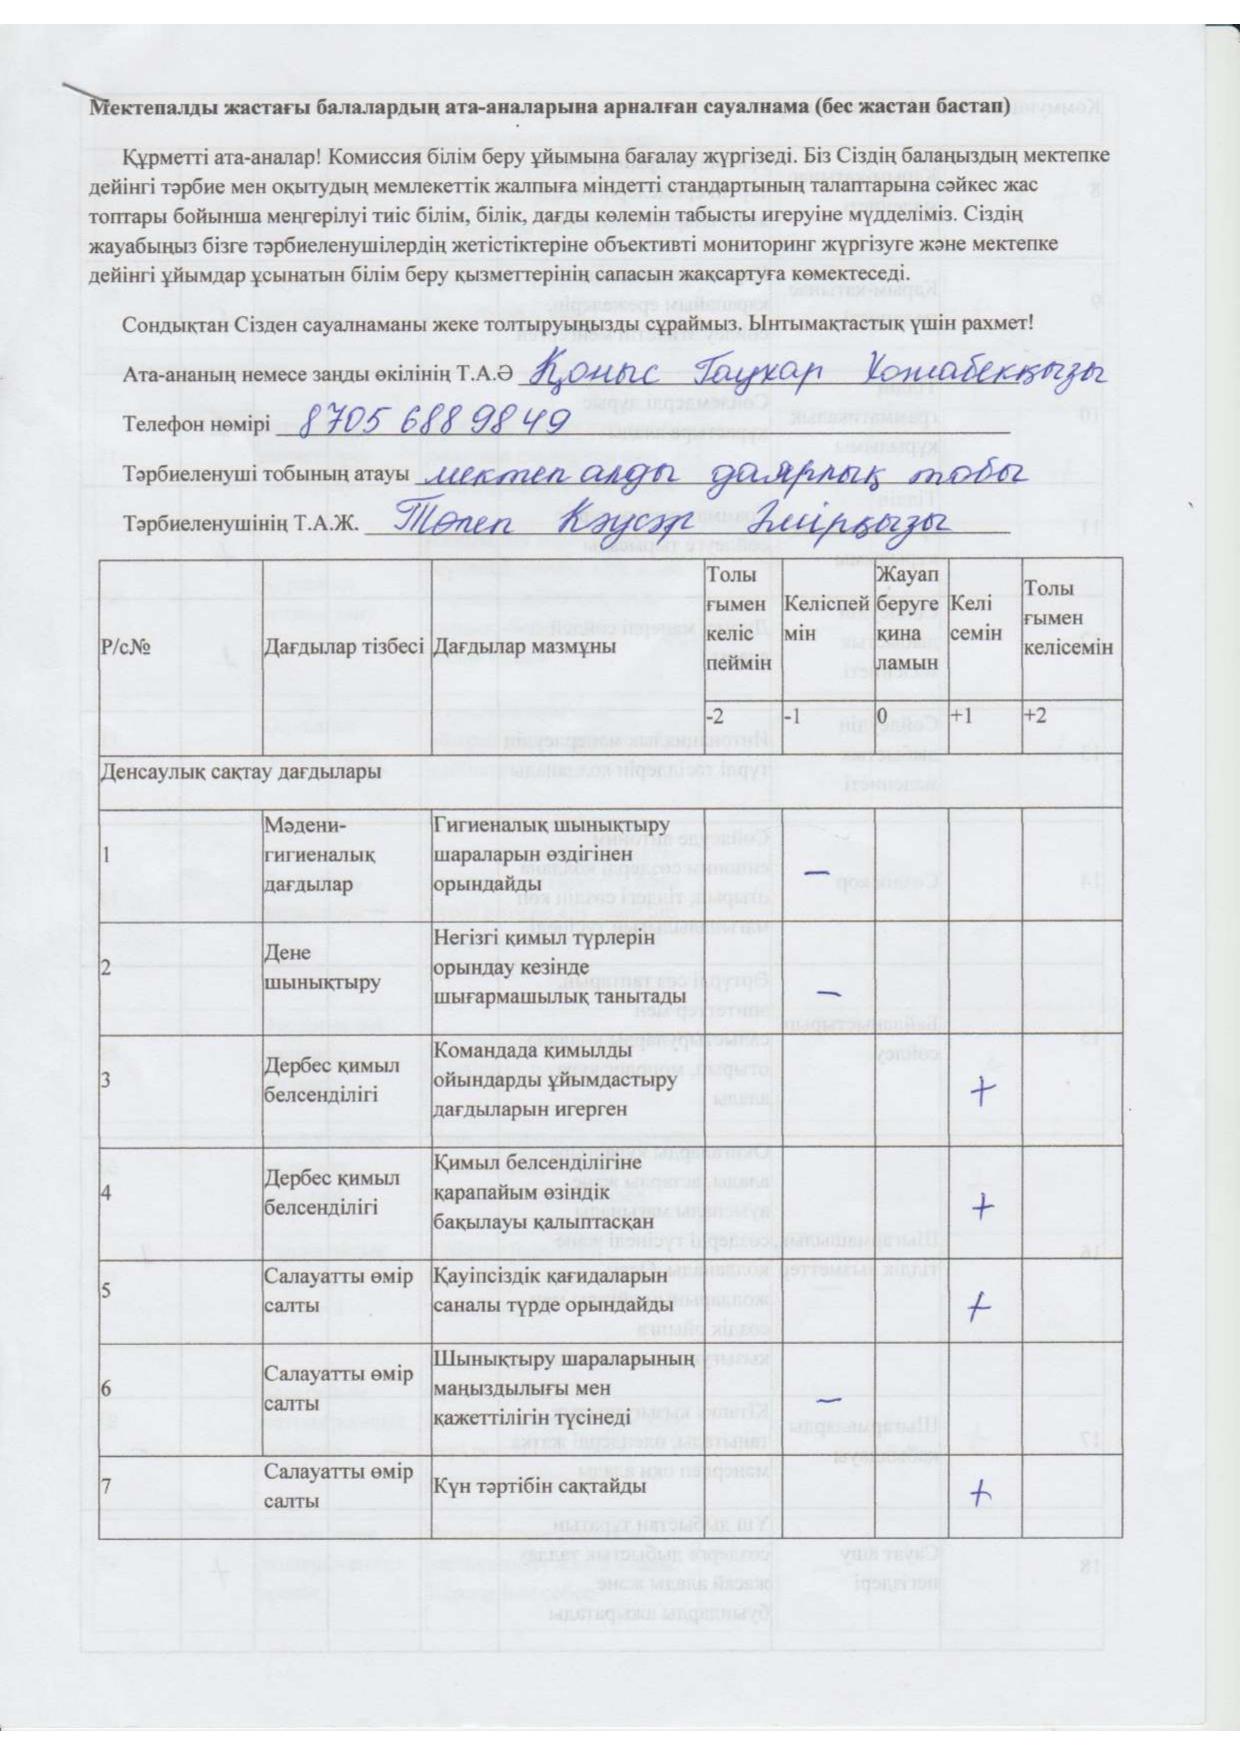 Мектепалды жастағы балалардың ата-аналарына арналған сауалнама (бес жастан бастап)
Құрметті ата-аналар! Комиссия білім беру ұйымына бағалау жүргізеді. Біз Сіздің балаңыздың мектепке
дейінгі тәрбие мен оқытудың мемлекеттік жалпыға міндетті стандартының талаптарына сәйкес жас
топтары бойынша меңгерілуі тиіс білім, білік, дағды көлемін табысты игеруіне мүдделіміз. Сіздің
жауабыңыз бізге тәрбиеленушілердің жетістіктеріне объективті мониторинг жүргізуге және мектепке
дейінгі ұйымдар ұсынатын білім беру қызметтерінің сапасын жақсартуға көмектеседі.
Сондықтан Сізден сауалнаманы жеке толтыруыңызды сұраймыз. Ынтымақтастық үшін рахмет!
Ата-ананың немесе заңды өкілінің Т.А.Ә Қоныс Гаухар Хожабекқызы
Телефон нөмірі 8705 688 9849
Тәрбиеленуші тобының атауы мектеп алды даярлық тобы
Тәрбиеленушінің Т.А.Ж. Төлеп Кәусәр Әмірқызы
Р/с№ Дағдылар тізбесі Дағдылар мазмұны
Толы
ғымен
келіс
пеймін
Келіспей
мін
Жауап
беруге
қина
ламын
Келі
семін
Толы
ғымен
келісемін
-2 -1 0 +1 +2
Денсаулық сақтау дағдылары
1
Мәдени-
гигиеналық
дағдылар
Гигиеналық шынықтыру
шараларын өздігінен
орындайды
–
2
Дене
шынықтыру
Негізгі қимыл түрлерін
орындау кезінде
шығармашылық танытады
–
3
Дербес қимыл
белсенділігі
Командада қимылды
ойындарды ұйымдастыру
дағдыларын игерген
+
4
Дербес қимыл
белсенділігі
Қимыл белсенділігіне
қарапайым өзіндік
бақылауы қалыптасқан
+
5
Салауатты өмір
салты
Қауіпсіздік қағидаларын
саналы түрде орындайды
+
6
Салауатты өмір
салты
Шынықтыру шараларының
маңыздылығы мен
қажеттілігін түсінеді
–
7
Салауатты өмір
салты
Күн тәртібін сақтайды
+